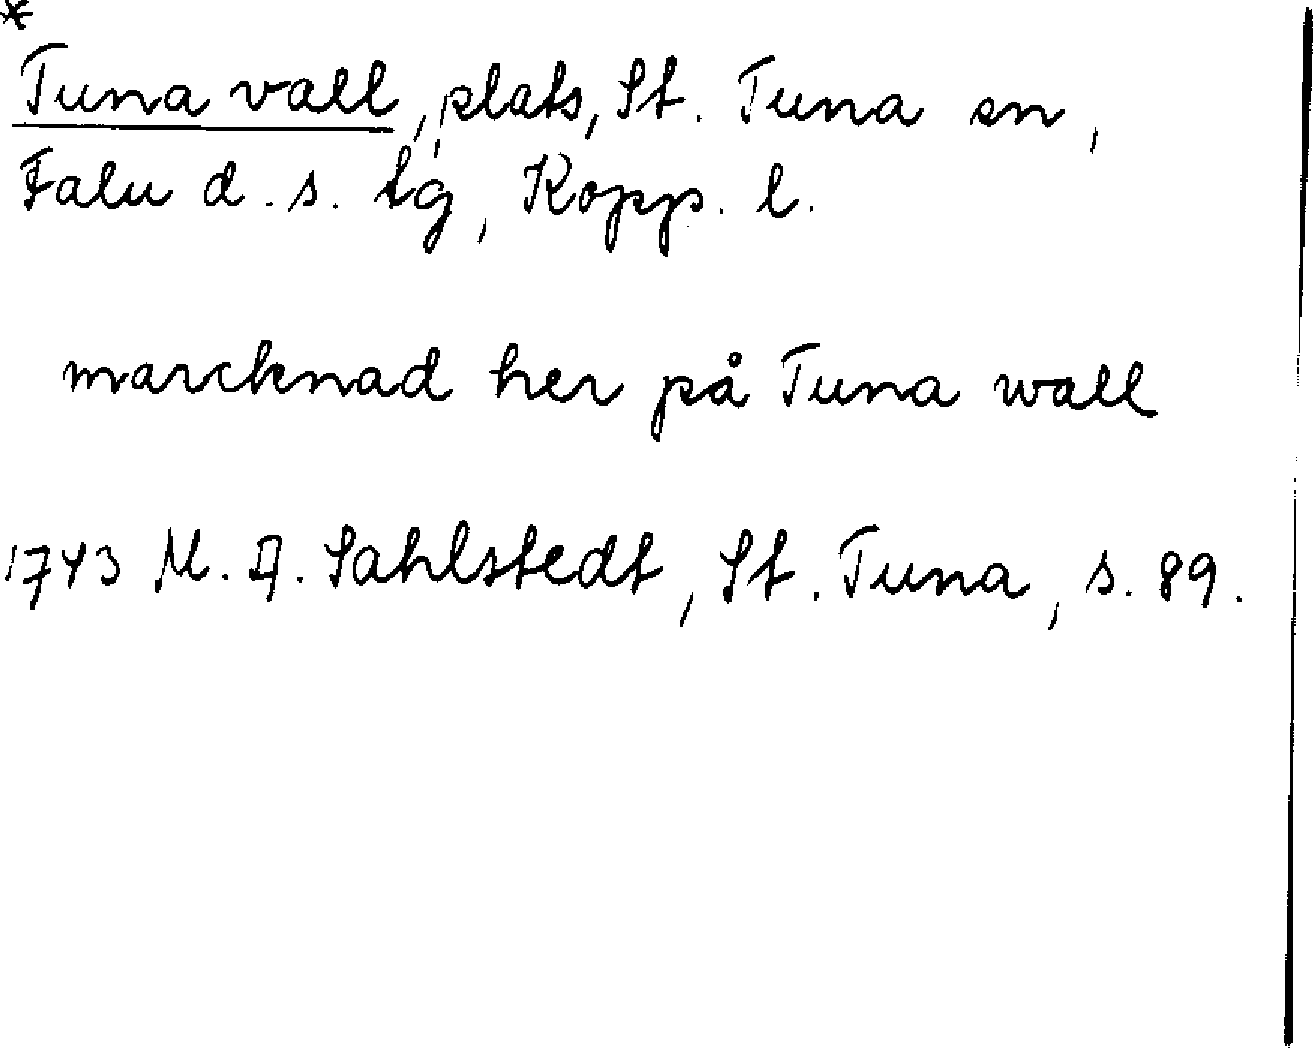 *
Tuna vall, plats, St. Tuna sn,
Falu d. s. tg, Kopp. l.
marcknad her på Tuna wall
1743 M. A. Sahlstedt, St. Tuna, s. 89.